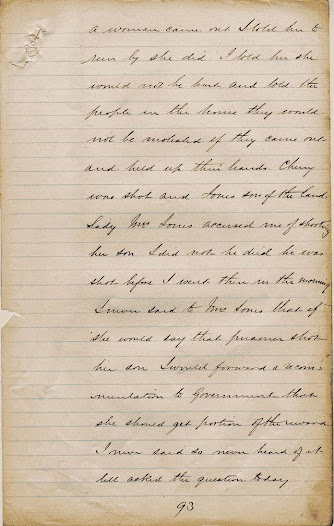 a woman came out I told her to
run by she did I told her she
would not be hurt and told the
people in the house they would
not be molested if they came out
and held up their hands Cherry
was shot and Jones son of the land
Lady Mrs Jones accused me of shooting
her son I did not he did he was
shot before I went there in the morning
I never said to Mrs Jones that if
she would say that prisoner shot
her son I would forward a recom-
mendation to Government that
she should get portion of the reward
I never said so never heard of it
till asked the question today
93